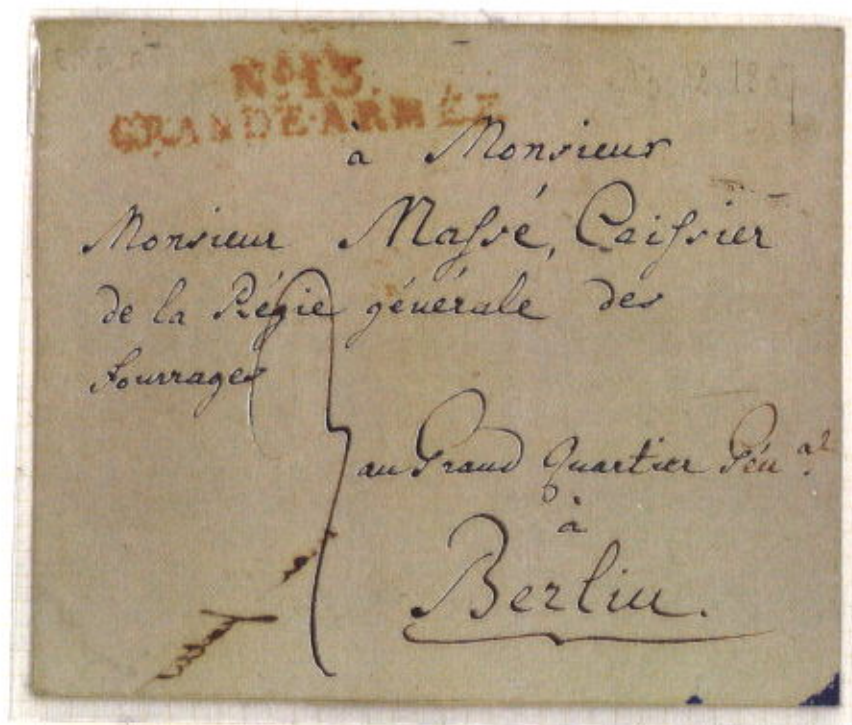 No. 13.
GRANDE·ARMÉE
à Monsieur
Monsieur Massé, Ceissier
de la Régie générale des
fourrages
au Grand Quartier Gén.al
à
Berlin.